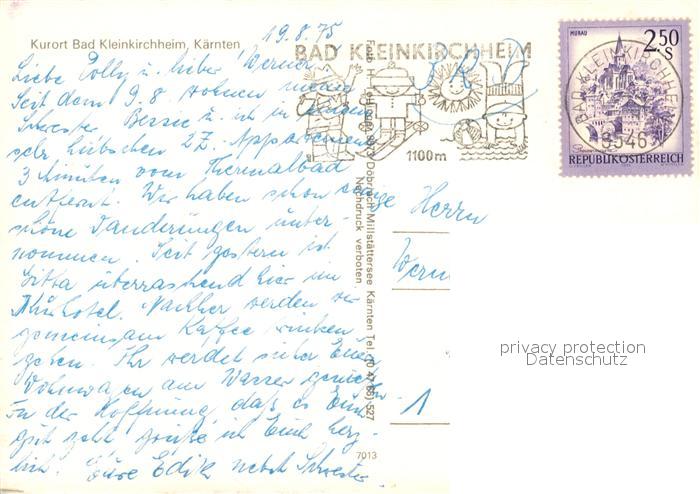 19.8.75
Kurort Bad Kleinkirchheim, Kärnten
BAD KLEINKIRCHHEIM
1100m
MURAU
2.50
S
BAD KLEINKIRCHHEIM
9546
REPUBLIK ÖSTERREICH
Liebe Polly u. lieber Werner.
Seit dem 9.8. wohnen meine
Schwester Bessie u. ich in einem
sehr hübschen 2Z. Appartement
3 Minuten vom Thermalbad
entfernt. Wir haben schon einige
schöne Wanderungen unter-
nommen. Seit gestern ist
Gitta überraschend hier im
Nachher werden wir
gemeinsam Kaffee trinken
gehen. Ihr werdet sicher Euren
Wohnwagen am Wasser genießen
In der Hoffnung, daß es Euch
gut geht, grüße ich Euch herz-
lich. Eure Edith nebst Schwester
Herrn
Wern
1
Döbriach Millstättersee Kärnten Tel.
527
Nachdruck verboten
7013
privacy protection
Datenschutz